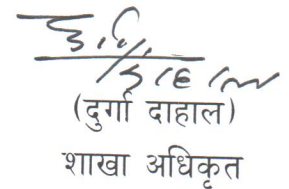 (दुर्गा दाहाल)
शाखा अधिकृत